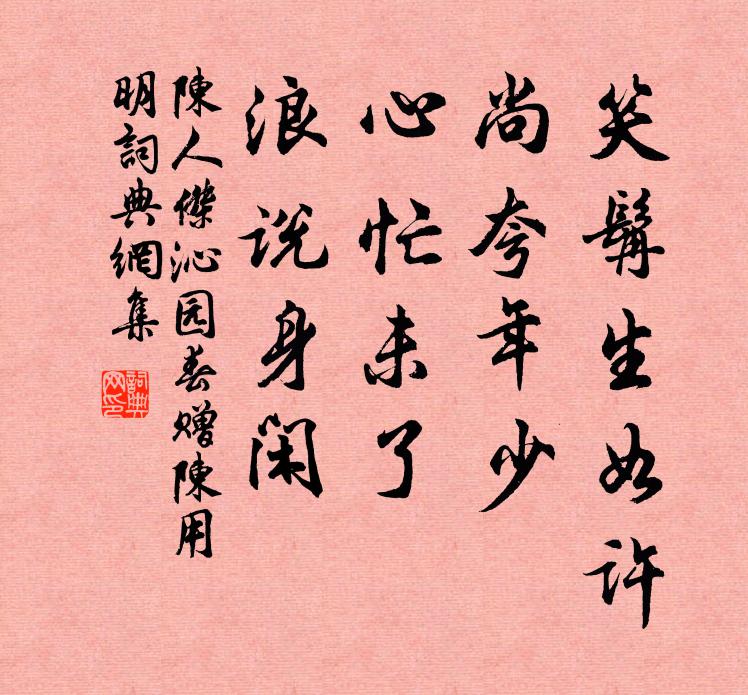 笑鬢生如許
尚夸年少
心忙未了
浪说身闲
陳人傑沁园春赠陳用
明詞典網集
詞典网印